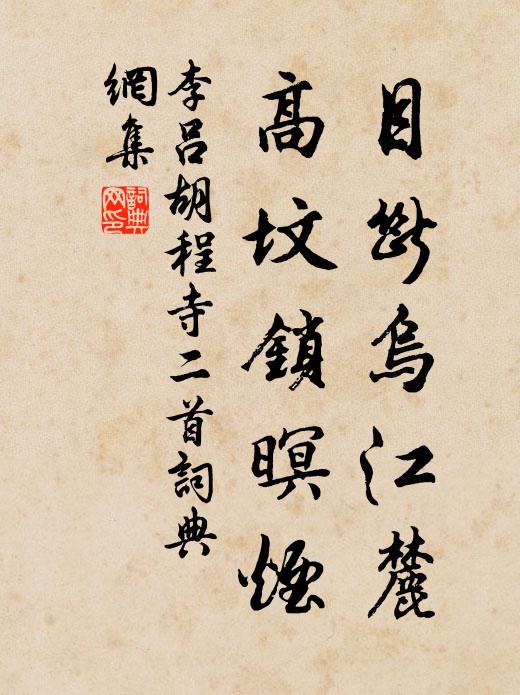 目斷烏江麓
高墳鎖暝煙
李呂胡程寺二首詞典
網集
詞典網印